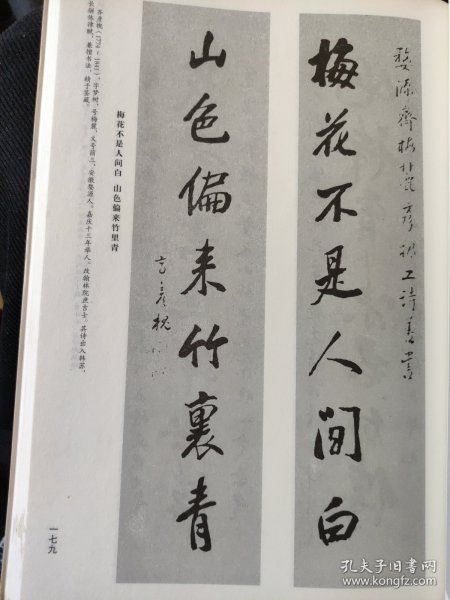 婺源齐梅麓彦槐工诗善书
梅花不是人间白
山色偏来竹裏青
齐彦槐
梅花不是人间白 山色偏来竹里青
齐彦槐(1774-1841),字梦树,号梅麓,又号荫三,安徽婺源人。嘉庆十三年举人。改翰林院庶吉士。其诗出入韩苏,
长骈体律赋,兼擅书法,精于鉴藏。
一七九
孔夫子旧书网
www.kongfz.com